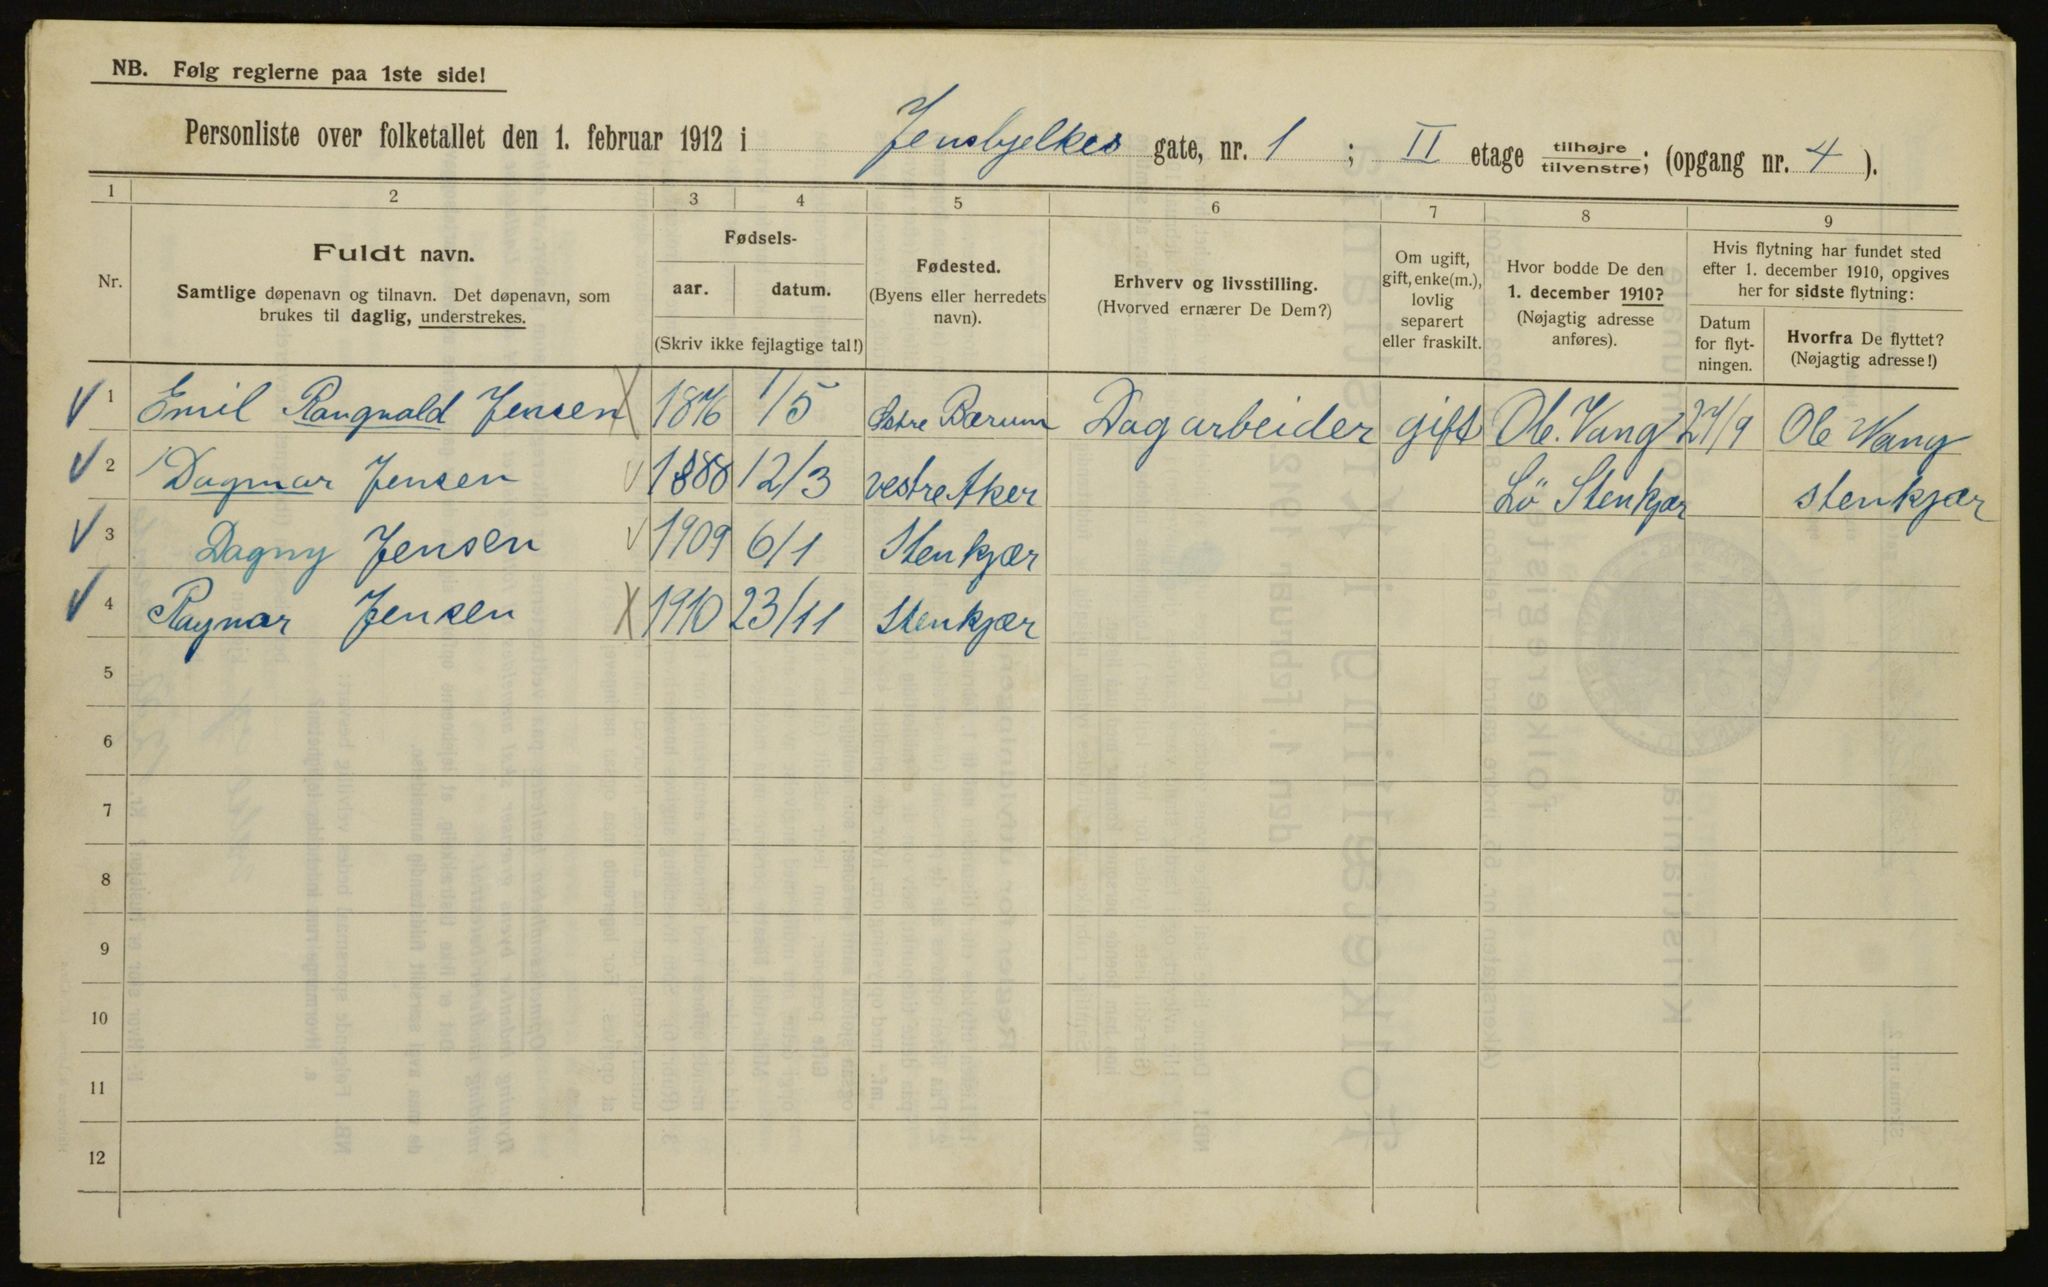 NB. Følg reglerne paa 1ste side!
Personliste over folketallet den 1. februar 1912 i Jensbjelkes gate, nr. 1 ; II etage tilhøjre tilvenstre; (opgang nr. 4 ).
1 2 3 4 5 6 7 8 9
Nr.
Fuldt navn.
Samtlige døpenavn og tilnavn. Det døpenavn, som
brukes til daglig, understrekes.
Fødsels-
aar. datum.
(Skriv ikke fejlagtige tal!)
Fødested.
(Byens eller herredets
navn).
Erhverv og livsstilling.
(Hvorved ernærer De Dem?)
Om ugift,
gift, enke(m.),
lovlig
separert
eller fraskilt.
Hvor bodde De den
1. december 1910?
(Nøjagtig adresse
anføres).
Hvis flytning har fundet sted
efter 1. december 1910, opgives
her for sidste flytning:
Datum
for flyt-
ningen.
Hvorfra De flyttet?
(Nøjagtig adresse!)
1 Emil Rangvald Jensen 1876 1/5 Bærum Dagarbeider gift Ole. Vang 27/9 Ole Wang
2 Dagmar Jensen 1888 12/3 vestre Aker Lø Stenkjær stenkjær
3 Dagny Jensen 1909 6/1 Stenkjær
4 Ragnar Jensen 1910 23/11 Stenkjær
5
6
7
8
9
10
11
12